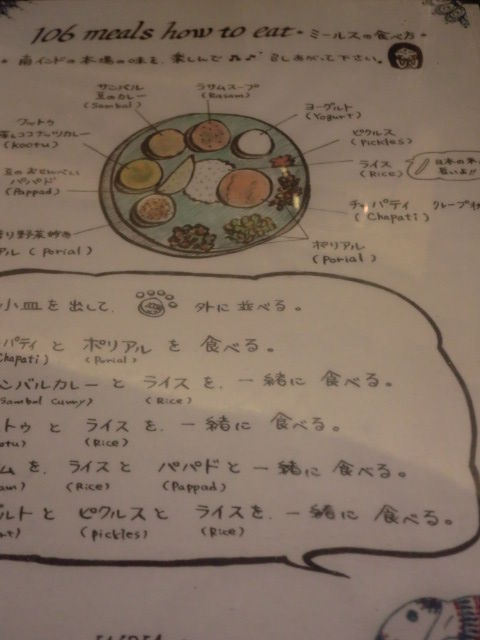 106 meals how to eat • ミールスの食べ方 •
• 南インドの本場の味を、楽しんで♫♪召しあがって下さい。
サンバル
豆のカレー
(Sambal)
ラサムスープ
(Rasam)
ヨーグルト
(Yogurt)
クットゥ
ココナッツカレー
(Kootu)
ピクルス
(Pickles)
豆のおせんべい
パパド
(Pappad)
ライス
(Rice)
日本の米
チャパティ
(Chapati)
クレープ
野菜炒め
アル (Porial)
ポリアル
(Porial)
小皿を出して、外に並べる。
パティ と ポリアル を 食べる。
Chapati) (Porial)
ンバルカレーと ライスを、一緒に 食べる。
Sambal Curry) (Rice)
トゥ と ライスを、一緒に食べる。
otu) (Rice)
ムを、ライスと パパドと一緒に食べる。
am) (Rice) (Pappad)
ルトと ピクルスと ライスを、一緒に 食べる。
rt) (pickles) (Rice)